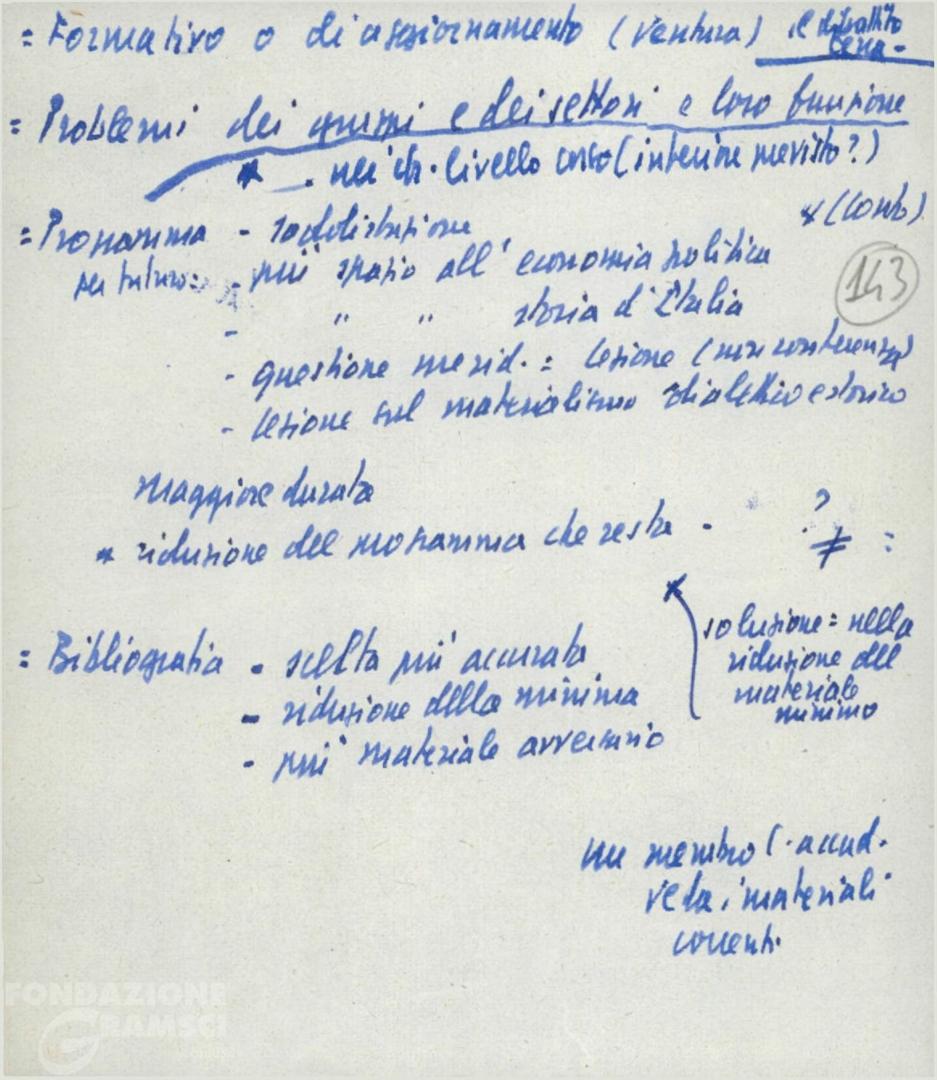 = Formativo o di aggiornamento (Ventura) il dibattito
= Problemi dei gruppi e dei settori e loro funzione
* - nei ch. livello corso (inferiore previsto?)
= Programma - soddisfazione *(Conto)
per futuro: - più spazio all'economia politica
143
- " " storia d'Italia
- questione merid.: lezione (non conferenza)
- lezione sul materialismo dialettico e storico
maggiore durata
* riduzione del programma che resta - ?
≠ :
= Bibliografia - scelta più accurata
- riduzione della minima
- più materiale avversario
* soluzione = nella
riduzione del
materiale
minimo
un membro
materiali
correnti
FONDAZIONE
GRAMSCI